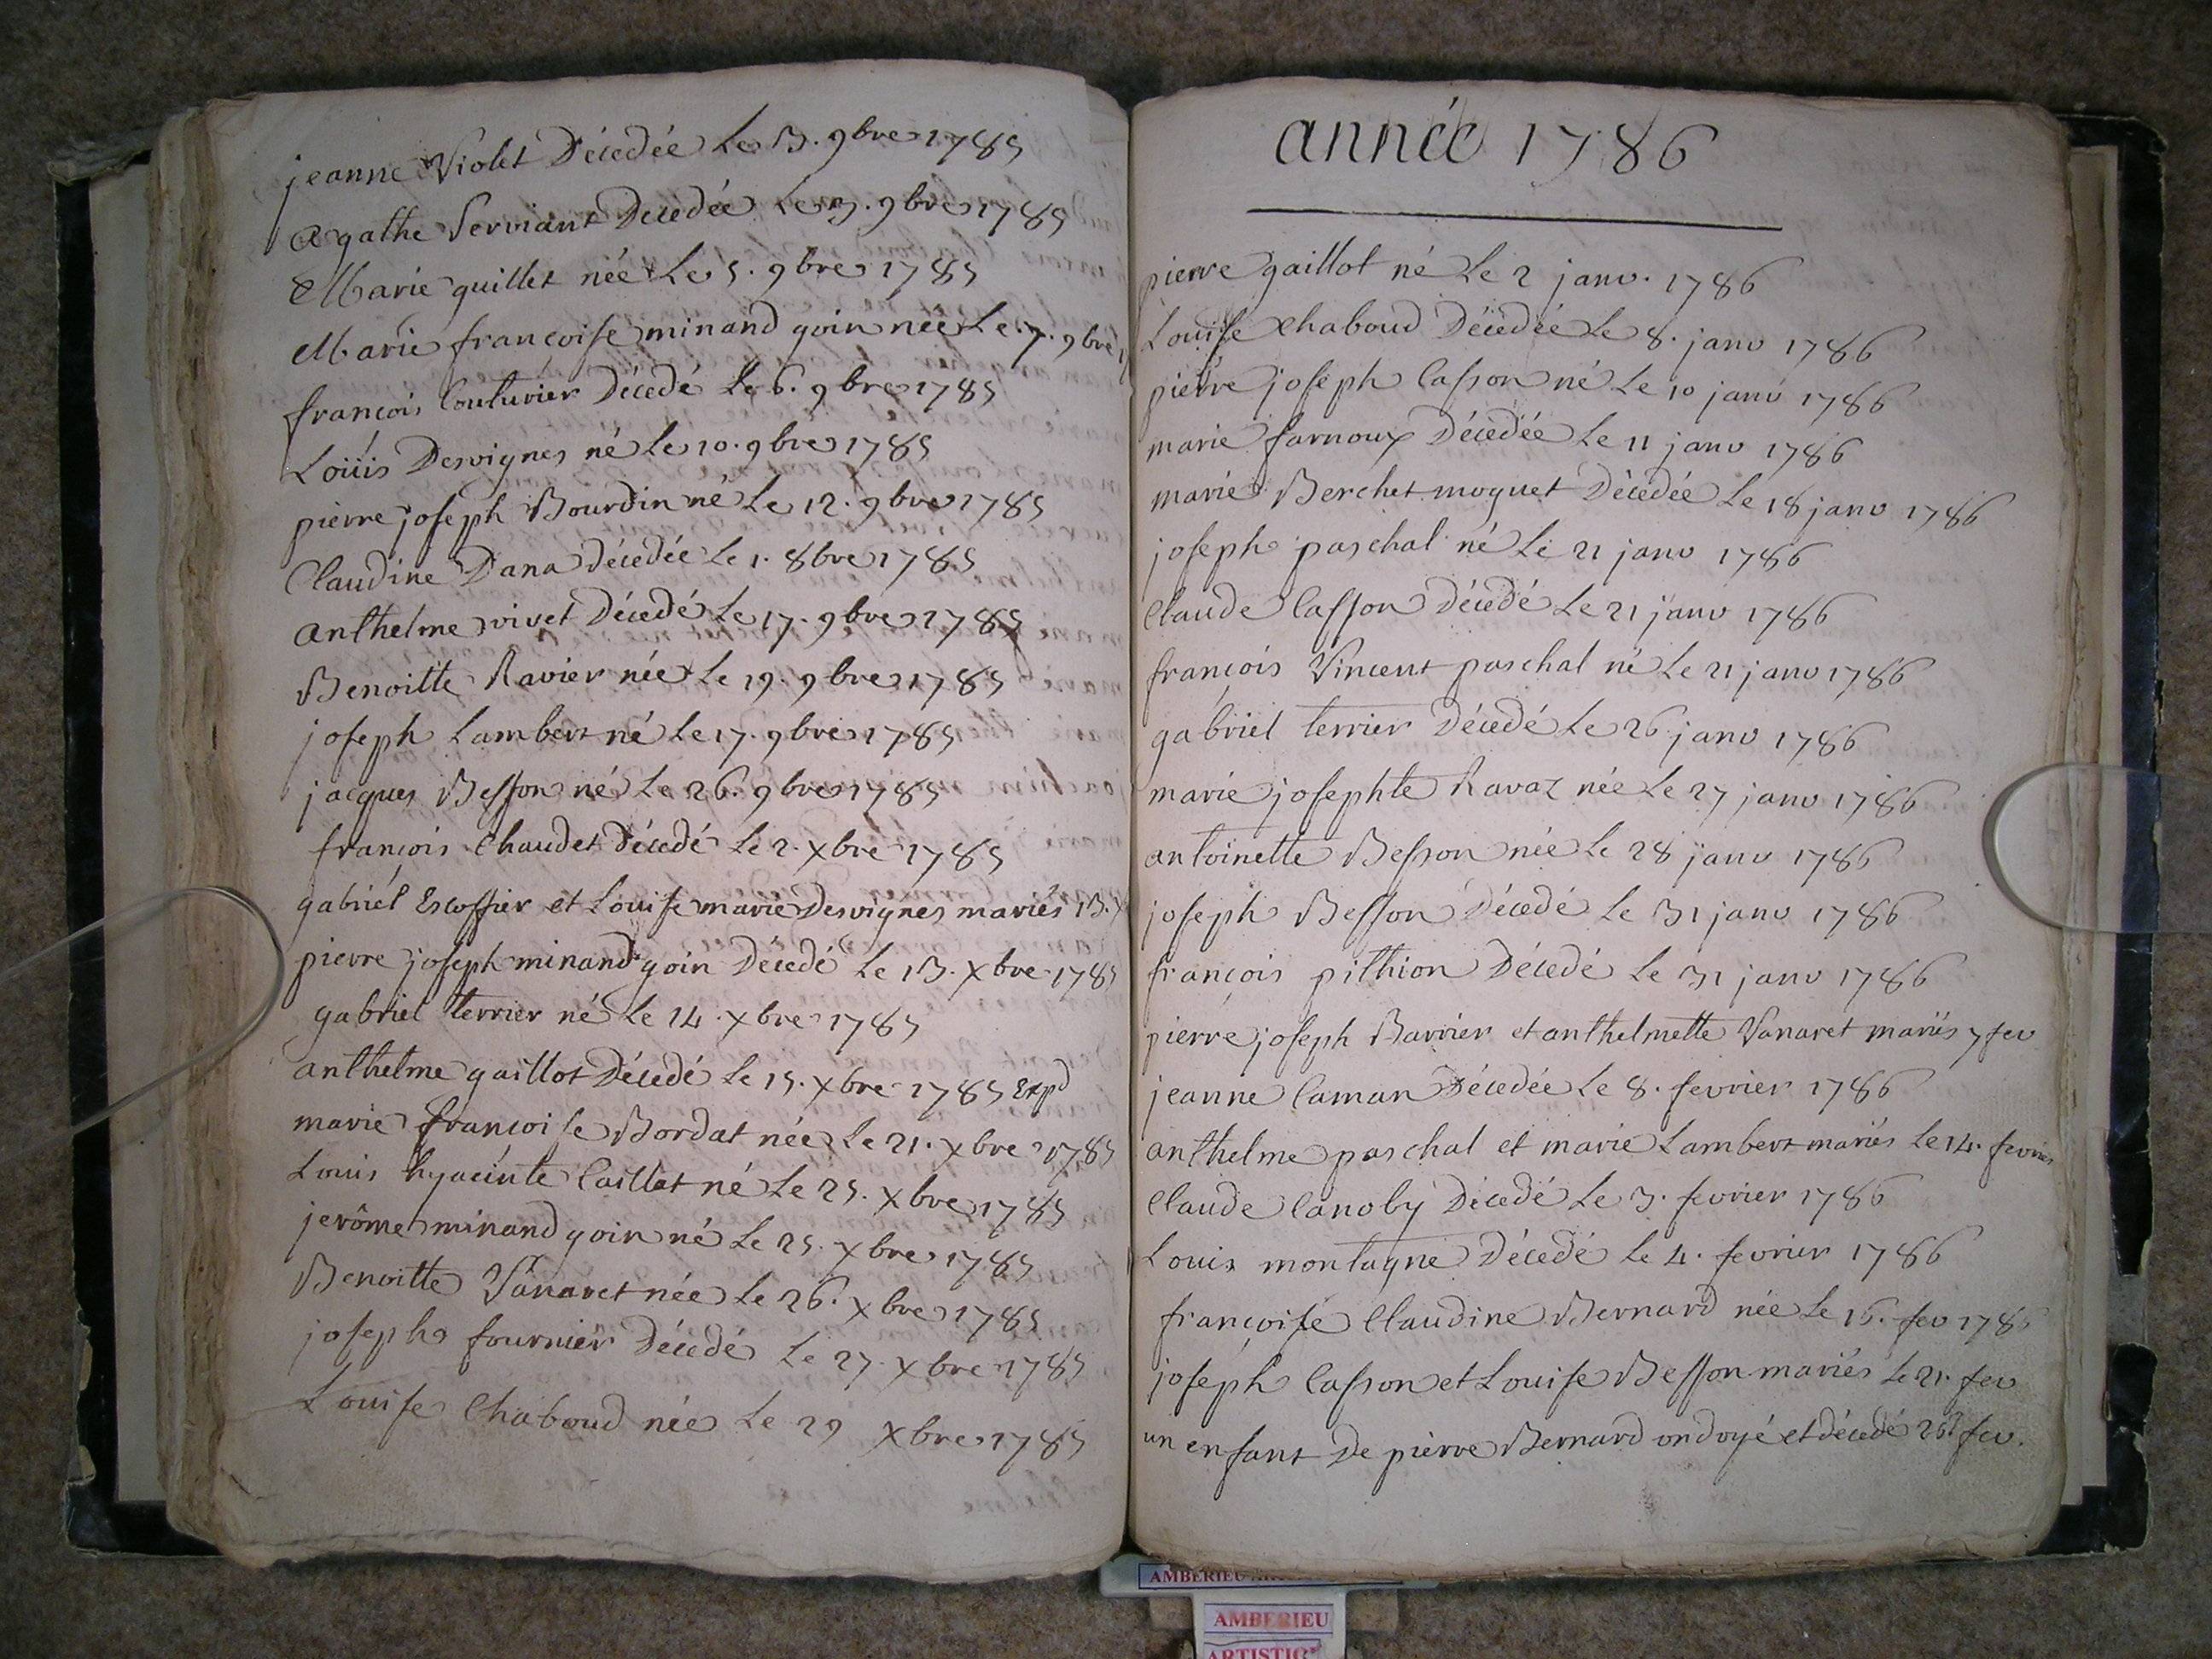 jeanne Violet Décedée Le 3. 9bre 1785
Agathe Serviant Decedée Le 3. 9bre 1785
Marie guillet née Le 5. 9bre 1785
Marie françoise minand goin née Le 7. 9bre
françois Couturier Décedé Le 6. 9bre 1785
Loüis Desvignes né Le 10. 9bre 1785
pierre joseph Bourdin né Le 12. 9bre 1785
Claudine Dana décedée Le 1. 8bre 1785
anthelme vivet Décedé Le 17. 9bre 1785
Benoitte Ravier née Le 19. 9bre 1785
joseph Lambert né Le 17. 9bre 1785
jacques Besson né Le 26. 9bre 1785
françois Chaudet décedé Le 2. Xbre 1785
gabriel Escoffier et Louise marie Desvignes mariés 13.
pierre joseph minand goin Décedé Le 13. Xbre 1785
gabriel terrier né Le 14. Xbre 1785
anthelme gaillot Décedé Le 15. Xbre 1785 Expd
marie françoise Bordat née Le 21. Xbre 1785
Louis hyacinte Caillat né Le 25. Xbre 1785
jerôme minand goin né Le 25. Xbre 1785
Benoitte Vanaret née Le 26. Xbre 1785
joseph fournier Décedé Le 27. Xbre 1785
Louise Chaboud née Le 29 Xbre 1785
année 1786
pierre gaillot né Le 2 janv. 1786
Louise Chaboud Décedée Le 8. janv 1786
pierre joseph Casson né Le 10 janv 1786
marie farnoux Décedée Le 11 janv 1786
marie Berchet moguet Décedée Le 18 janv 1786
joseph paschal né Le 21 janv 1786
Claude Casson Décedé Le 21 janv 1786
françois Vincent paschal né Le 21 janv 1786
gabriel terrier Décedé Le 26 janv 1786
marie josephte Ravaz née Le 27 janv 1786
antoinette Besson née Le 28 janv 1786
joseph Besson Décedé Le 31 janv 1786
françois pithion Décedé Le 31 janv 1786
pierre joseph Barrier et anthelmette Vanaret mariés 7 fev
jeanne Caman Décedée Le 8. fevrier 1786
anthelme paschal et marie Lambert mariés Le 14. fevrier
Claude Canoby Décedé Le 3. fevrier 1786
Louis montagne Décedé Le 4. fevrier 1786
françoise Claudine Bernard née Le 16. fev 1786
joseph Casson et Louise Besson mariés Le 21. fev
un enfant De pierre Bernard ondoyé et décedé 26 fev.
AMBERIEU
AMBERIEU
ARTISTIC